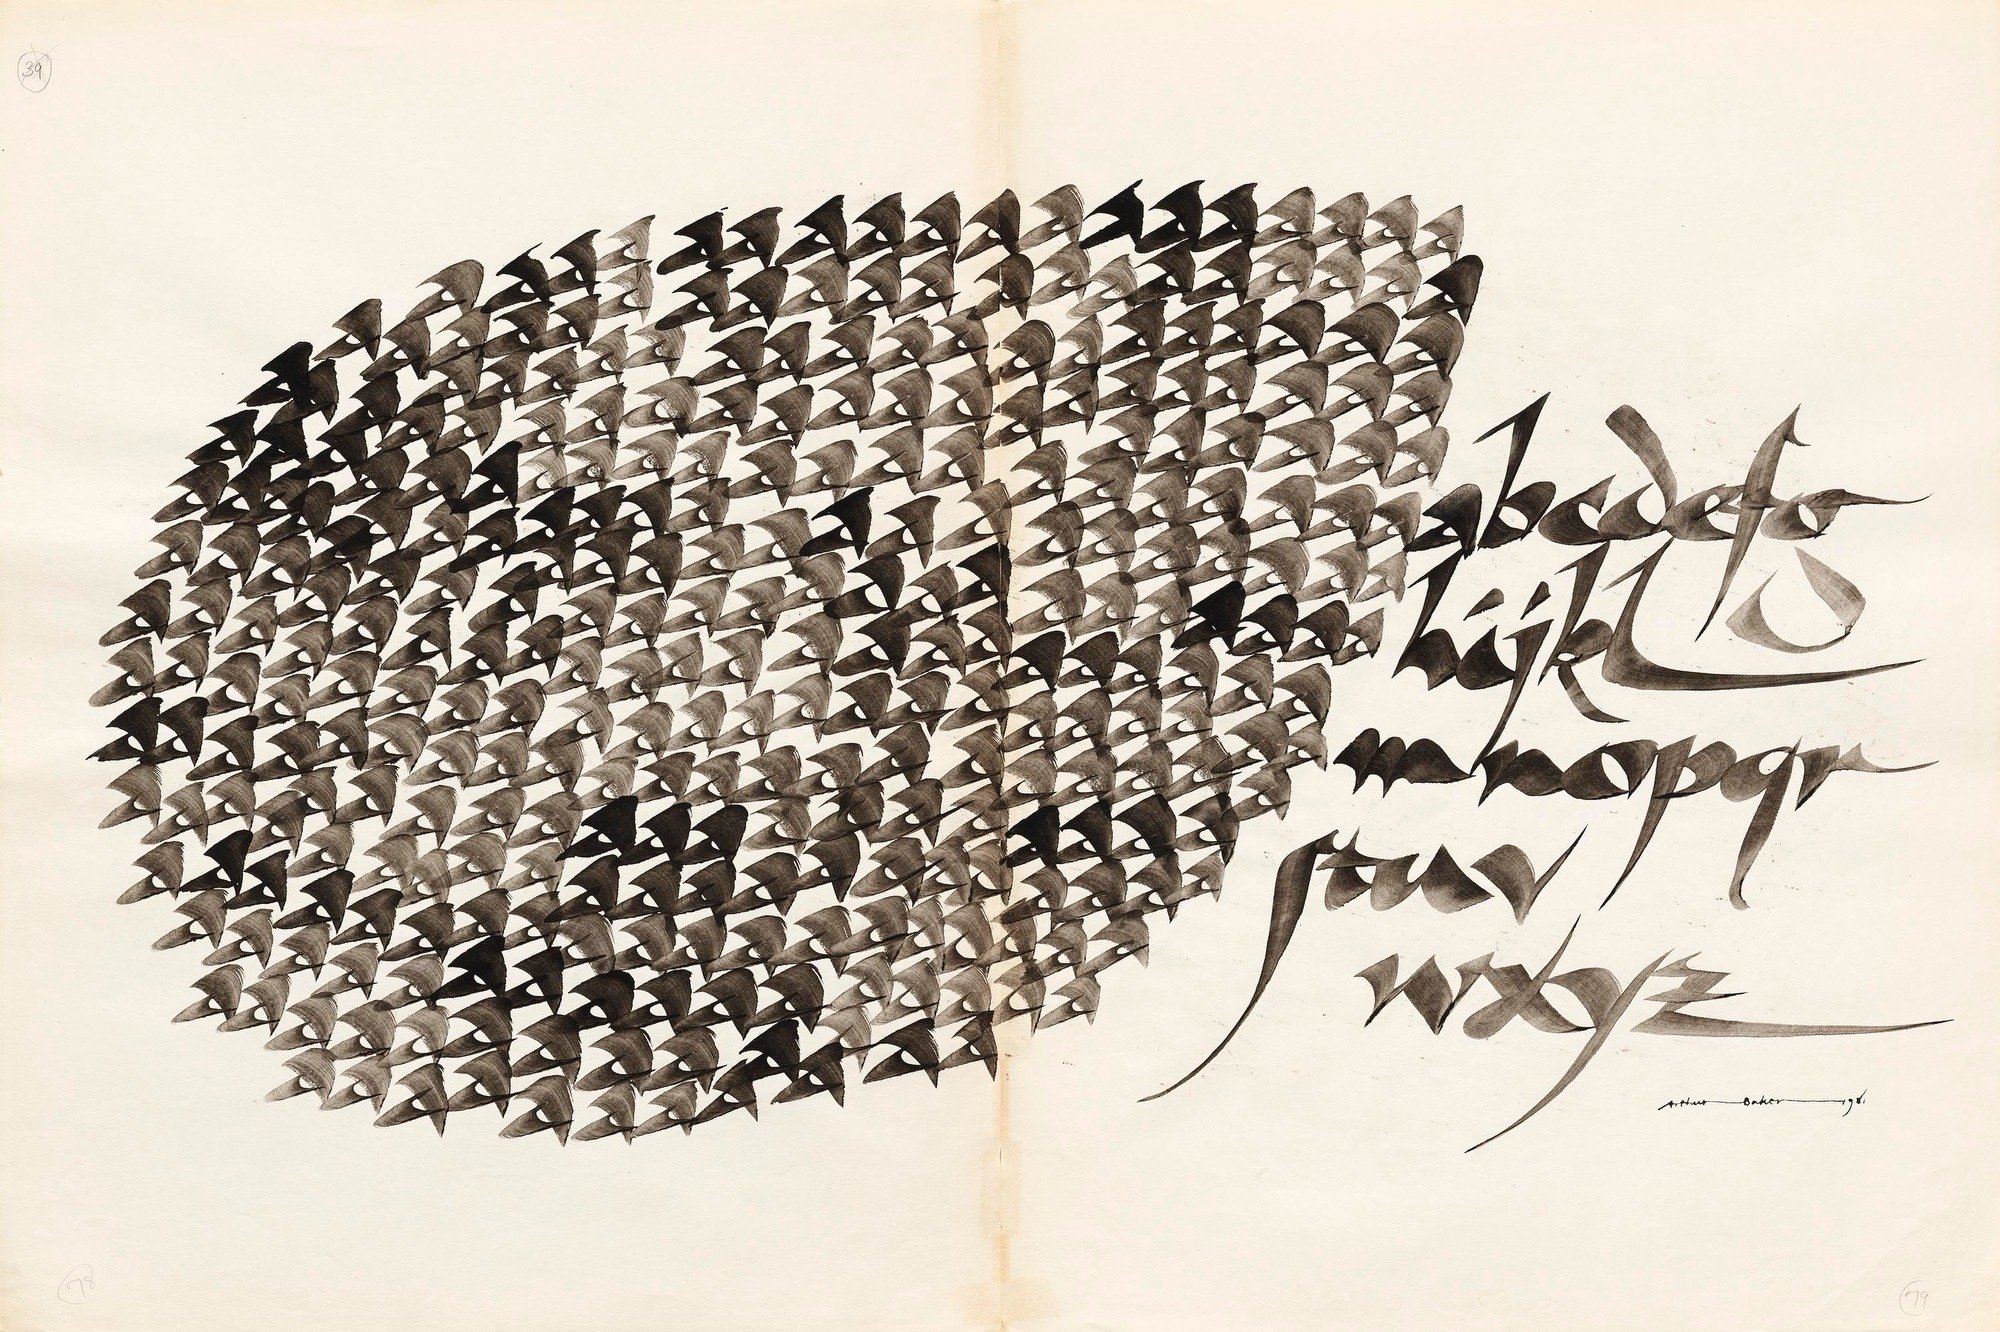 39
abcdefg
hijkl
mnopqr
stuv
wxyz
Arthur Baker 1981
78
79